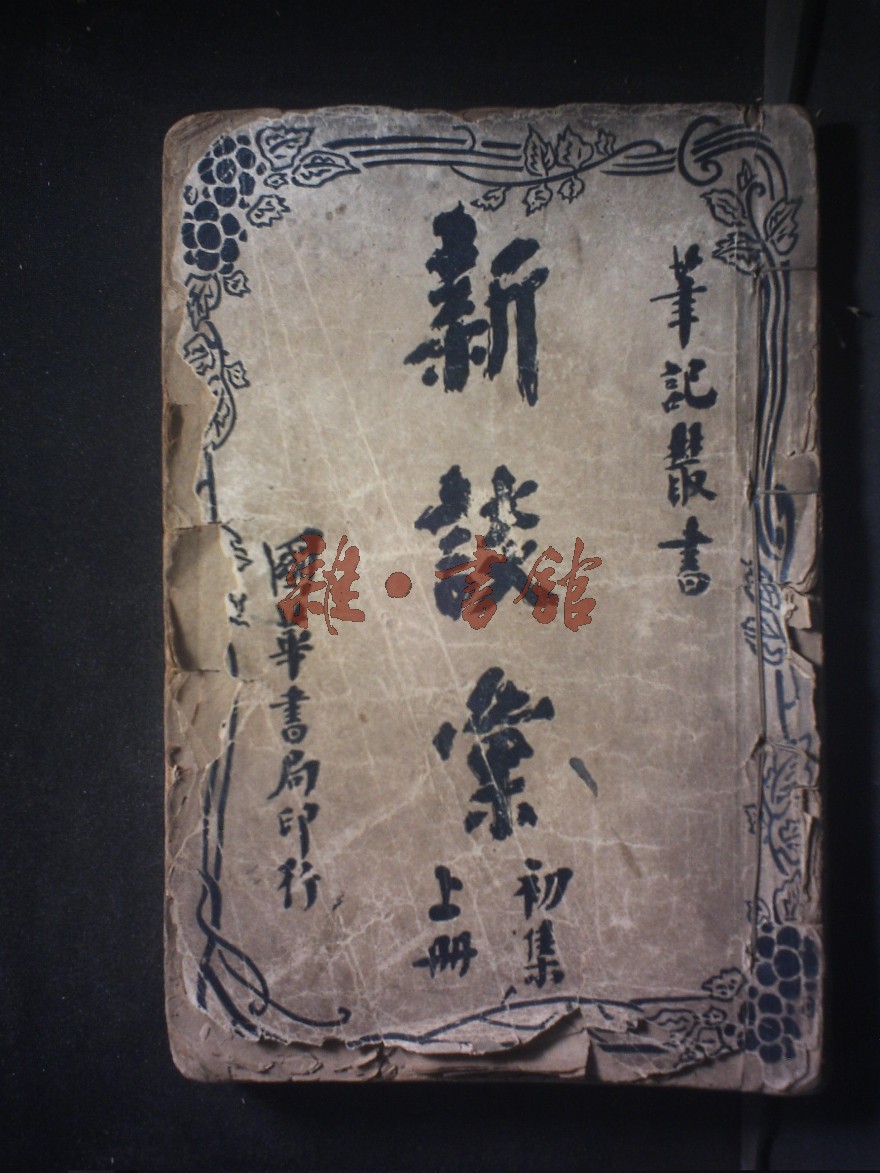 筆記叢書
新叢彙
初集
上冊
國華書局印行
雜·書館